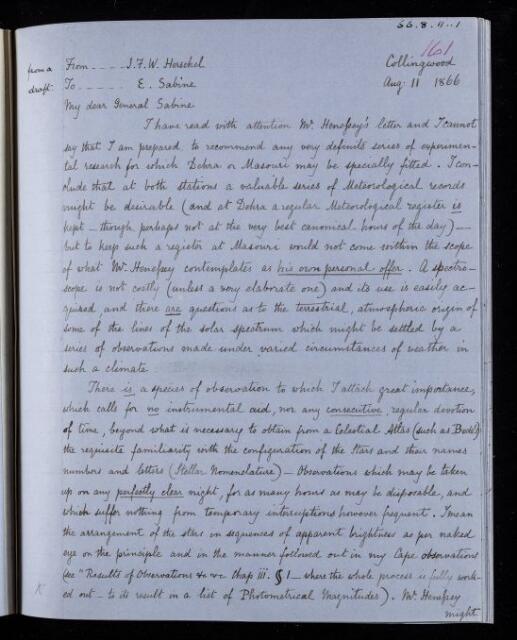 66.8.11.1
161
from a draft. From _ _ _ _ J.F.W. Herschel Collingwood
To _ _ _ _ _ E. Sabine Aug 11 1866
My dear General Sabine
I have read with attention Mr. Henefsey's letter and I cannot
say that I am prepared to recommend any very definite series of experimen-
tal research for which Dehra or Masouri may be specially fitted. I con-
clude that at both stations a valuable series of Meteorological records
might be desirable (and at Dehra a regular Meteorological register is
kept – though perhaps not at the very best canonical hours of the day) —
but to keep such a register at Masouri would not come within the scope
of what Mr. Henefsey contemplates as his own personal offer. A spectro-
scope is not costly (unless a very elaborate one) and its use is easily ac-
quired, and there are questions as to the terrestrial, atmospheric origin of
some of the lines of the solar spectrum which might be settled by a
series of observations made under varied circumstances of weather in
such a climate
There is a species of observation to which I attach great importance,
which calls for no instrumental aid, nor any consecutive, regular devotion
of time, beyond what is necessary to obtain from a Celestial Atlas (such as Bode's)
the requisite familiarity with the configuration of the Stars and their names
numbers and letters (Stellar Nomenclature) – Observations which may be taken
up on any perfectly clear night, for as many hours as may be disposable, and
which suffer nothing from temporary interruptions however frequent. I mean
the arrangement of the stars in sequences of apparent brightness as per naked
eye on the principle and in the manner followed out in my Cape observations
(see "Results of Observations &c &c Chap III. § 1 – where the whole process is fully work-
ed out – to its result in a list of Photometrical Magnitudes). Mr. Henefsey
might